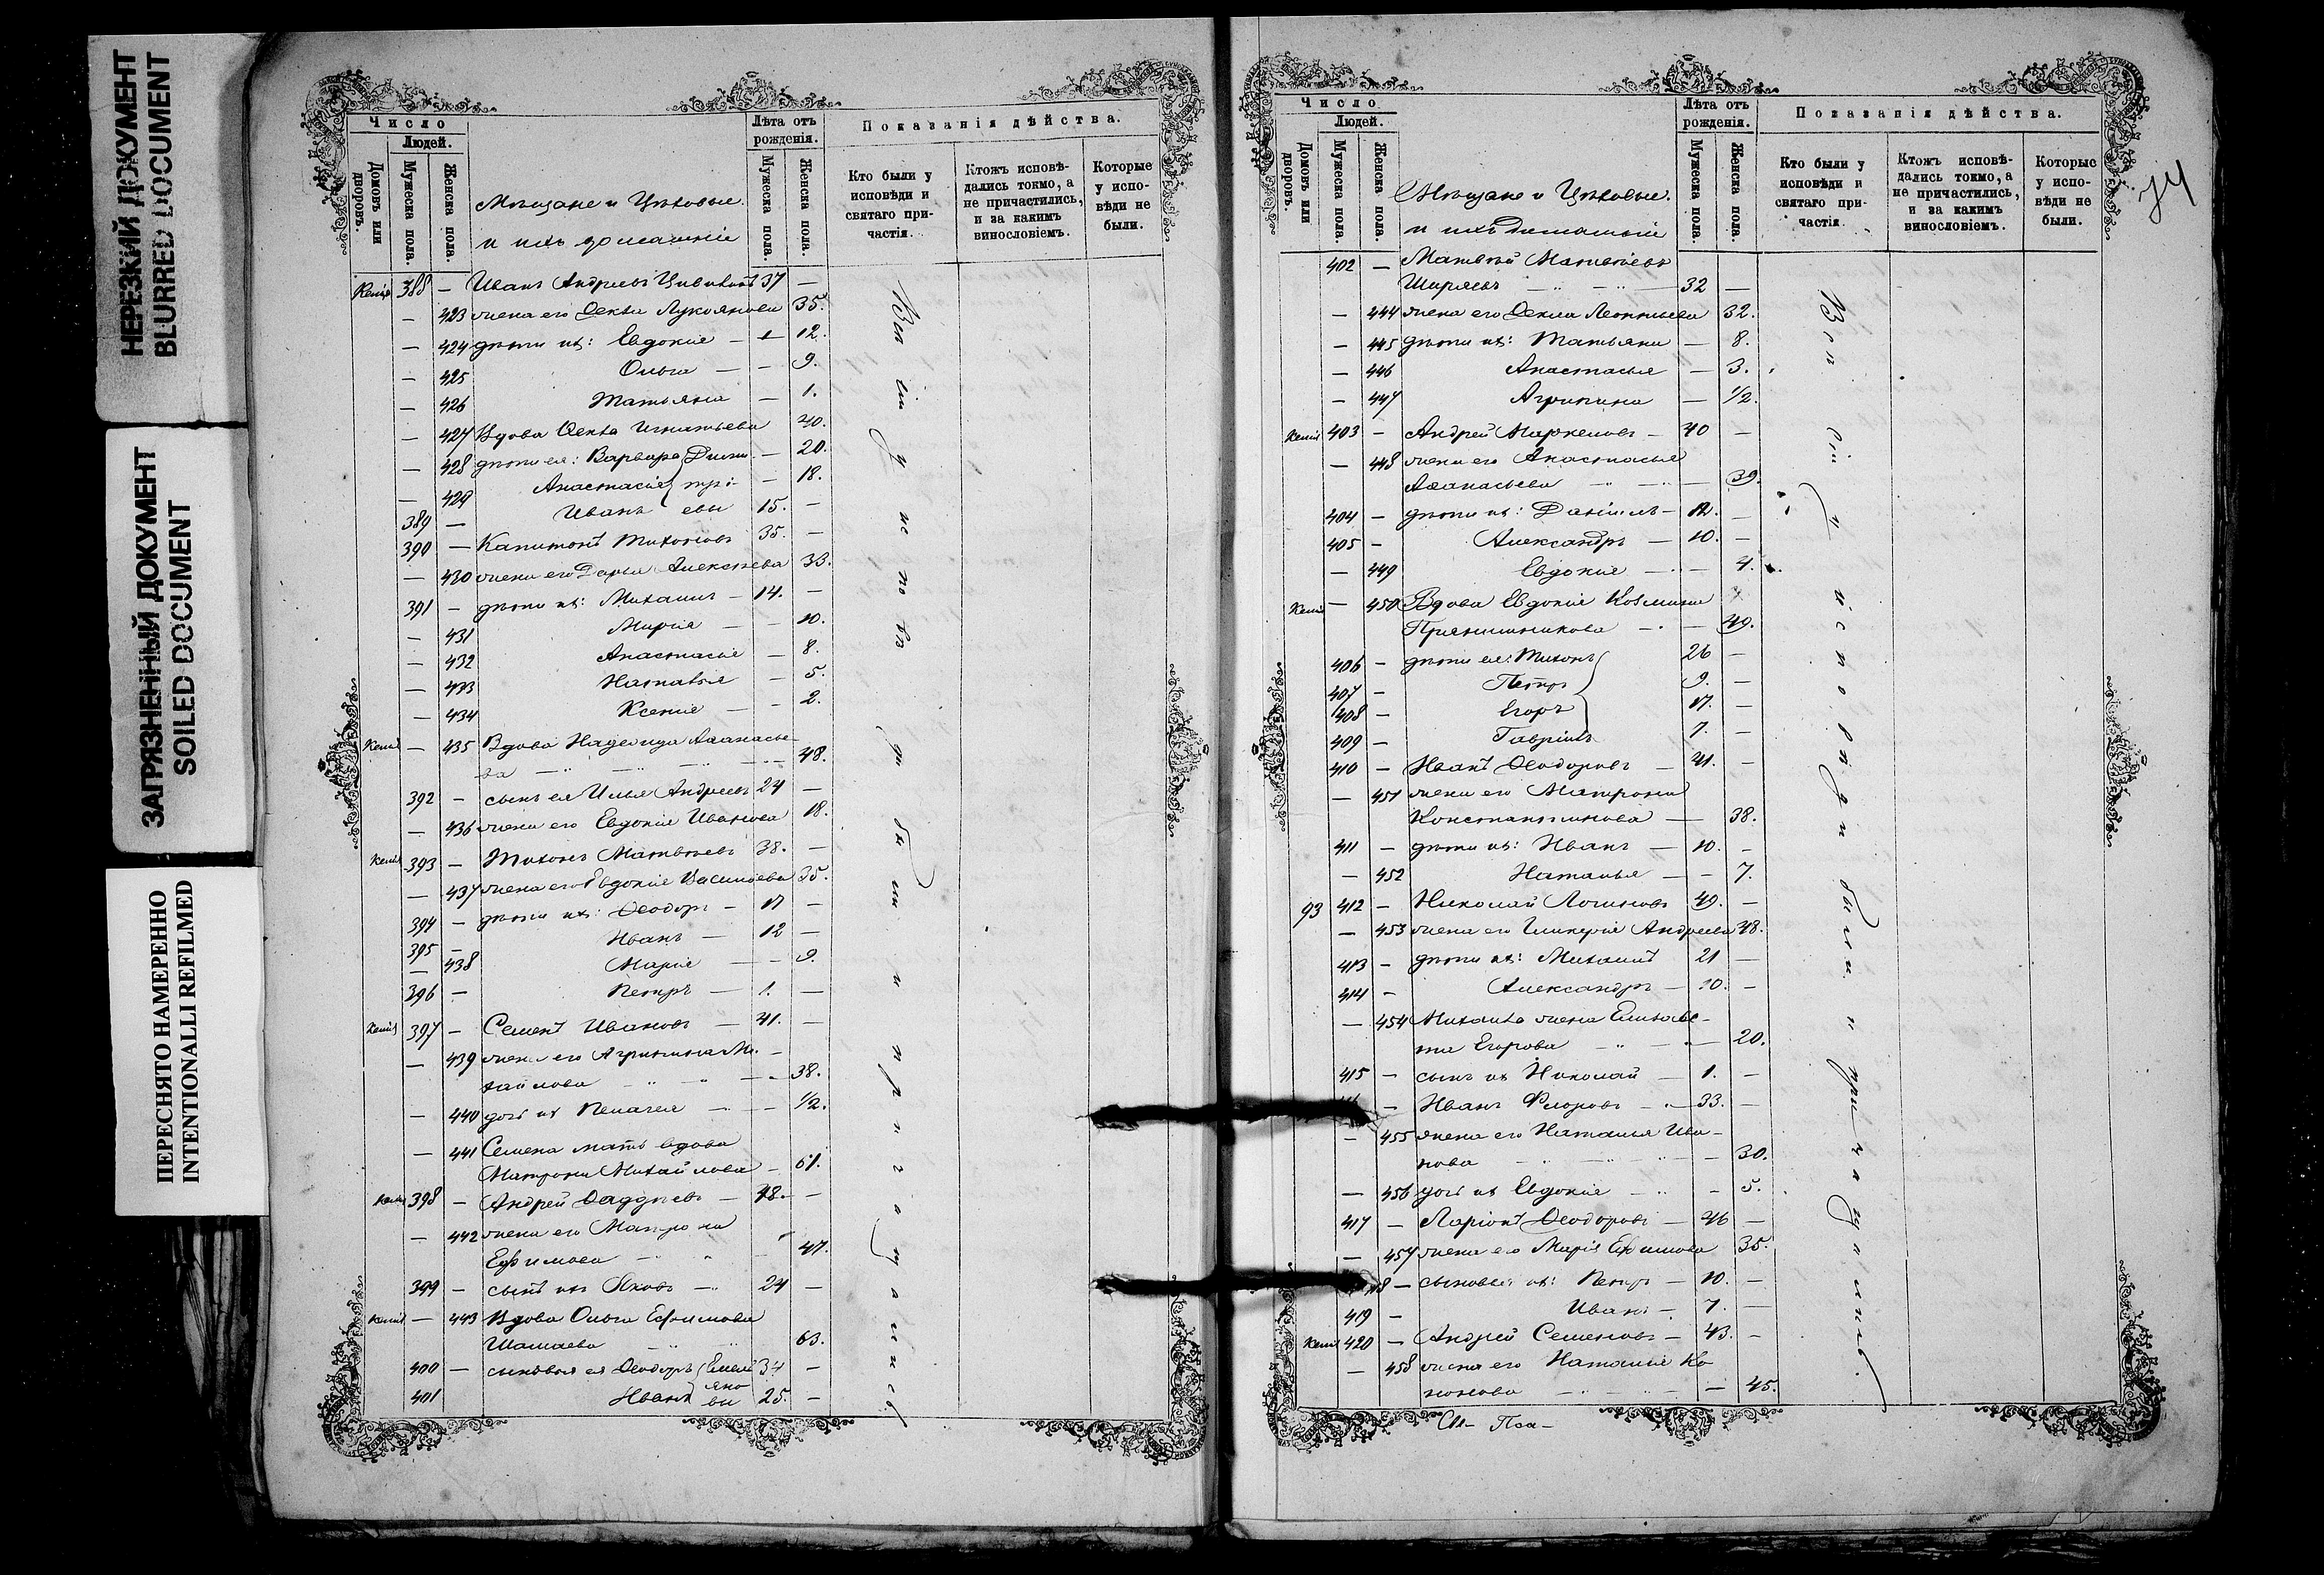 НЕРЕЗКИЙ ДОКУМЕНТ
BLURRED DOCUMENT
ЗАГРЯЗНЕННЫЙ ДОКУМЕНТ
SOILED DOCUMENT
ПЕРЕСНЯТО НАМЕРЕННО
INTENTIONALLI REFILMED
Число
Людей.
Домовъ или дворовъ.
Мужеска пола.
Женска пола.
Мѣщане и Цѣховые
и ихъ домашніе
Лѣта отъ рожденія.
Мужеска пола.
Женска пола.
Показанія дѣйства.
Кто были у исповѣди и святаго причастія.
Ктожъ исповѣдались токмо, а не причастились, и за какимъ винословіемъ.
Которые у исповѣди не были.
388 — Иванъ Андреевъ 37 —
— 423 жена его Ѳекла Лукоянова 35.
— 424 дѣти их: Евдокія — 12.
— 425 Ольга — 9.
— 426 Татьяна — 1.
— 427 Вдова Ѳекла Игнатьева 40.
— 428 дѣти ея: Варвара Дими — 20.
— 429 Анастасія трі — 18.
389 — Иванъ евы 15. —
390 — Капитонъ Тихоновъ 35. —
— 430 жена его Дарья Алексѣева 33.
391 — дѣти их: Михаилъ — 14. —
— 431 Марія — 10.
— 432 Анастасія — 8.
— 433 Наталья — 5.
— 434 Ксенія — 2.
— 435 Вдова Надежда Аѳанасье-
ва 48.
392 — сынъ ея Илья Андреевъ 24 —
— 436 жена его Евдокія Иванова 18.
393 — Тихонъ Матвѣевъ 38. —
— 437 жена его Евдокія Васильева 35.
394 — дѣти их: Ѳеодоръ — 17 —
395 — Иванъ — 12 —
— 438 Марія — 9.
396 — Петръ — 1. —
397 — Семенъ Ивановъ — 41. —
— 439 жена его Агрипина Ми-
хайлова 38.
— 440 дочь их Пелагея — 1/2.
— 441 Семена мать вдова
Матрона Михайлова — 61.
398 — Андрей Ѳаддѣевъ — 48. —
— 442 жена его Матрона
Ефимова 47.
399 — сынъ их Яковъ — 24 —
— 443 Вдова Ольга Ефимова
63.
400 — сыновья ея Ѳеодоръ Емель 34 —
401 Иванъ яно вы 25. —
Всѣ сіи у исповѣди были и причащались
74
Число
Людей.
Домовъ или дворовъ.
Мужеска пола.
Женска пола.
Мѣщане и Цѣховые.
и ихъ домашніе
Лѣта отъ рожденія.
Мужеска пола.
Женска пола.
Показанія дѣйства.
Кто были у исповѣди и святаго причастія
Ктожъ исповѣдались токмо, а не причастились, и за какимъ винословіемъ.
Которые у исповѣди не были.
402 — Матвѣй Матвѣевъ
Ширяевъ 32 —
— 444 жена его Ѳекла Леонтьева 32.
— 445 дѣти их: Татьяна — 8.
— 446 Анастасья — 3.
— 447 Агрипина — 1/2.
403 — Андрей Маркеловъ — 40 —
— 448 жена его Анастасья
Аѳанасьева — 39.
404 — дѣти их: Даніилъ — 12. —
405 — Александръ — 10. —
— 449 Евдокія — 4.
— 450 Вдова Евдокія Козмина
Прянишникова — 49.
406 — дѣти ея: Тихонъ 26 —
407 — Петръ 9. —
408 — Егоръ 17. —
409 — Гавріилъ 7. —
410 — Иванъ Ѳеодоровъ — 41. —
— 451 жена его Матрона
Константинова — 38.
411 — дѣти их: Иванъ — 10. —
— 452 Наталья — 7.
93 412 — Николай Логиновъ 49. —
— 453 жена его Гликерія Андреева 48.
413 — дѣти их: Михаилъ 21 —
414 — Александръ — 10. —
— 454 Михаила жена Елизаве-
та Егорова — 20.
415 — сынъ их Николай — 1. —
— Иванъ Флоровъ — 33. —
— 455 жена его Наталья Ива-
нова — 30.
— 456 дочь их Евдокія — 5.
417 — Ларіонъ Ѳеодоровъ — 36 —
— 457 жена его Марія Ефимова 35.
18 — сыновья их: Петръ — 10. —
419 — Иванъ — 7. —
420 — Андрей Семеновъ — 43. —
— 458 жена его Наталія Ко
нонова — 45.
Всѣ сіи у исповѣди были и причащались.